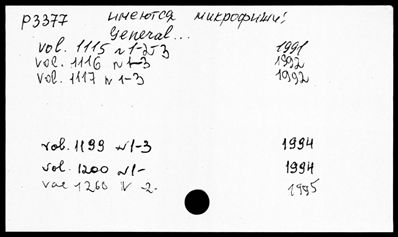 P3377 имеются микрофиши!
General...
vol. 1115 N 1-2,3 1991
vol. 1116 N 1-3 1992
vol. 1117 N 1-3 1992
vol. 1199 N 1-3 1994
vol. 1200 N 1- 1994
vol 1260 N -2. 1995